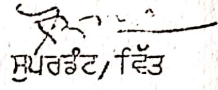 ਸੁਪਰਡੰਟ/ਵਿੱਤ